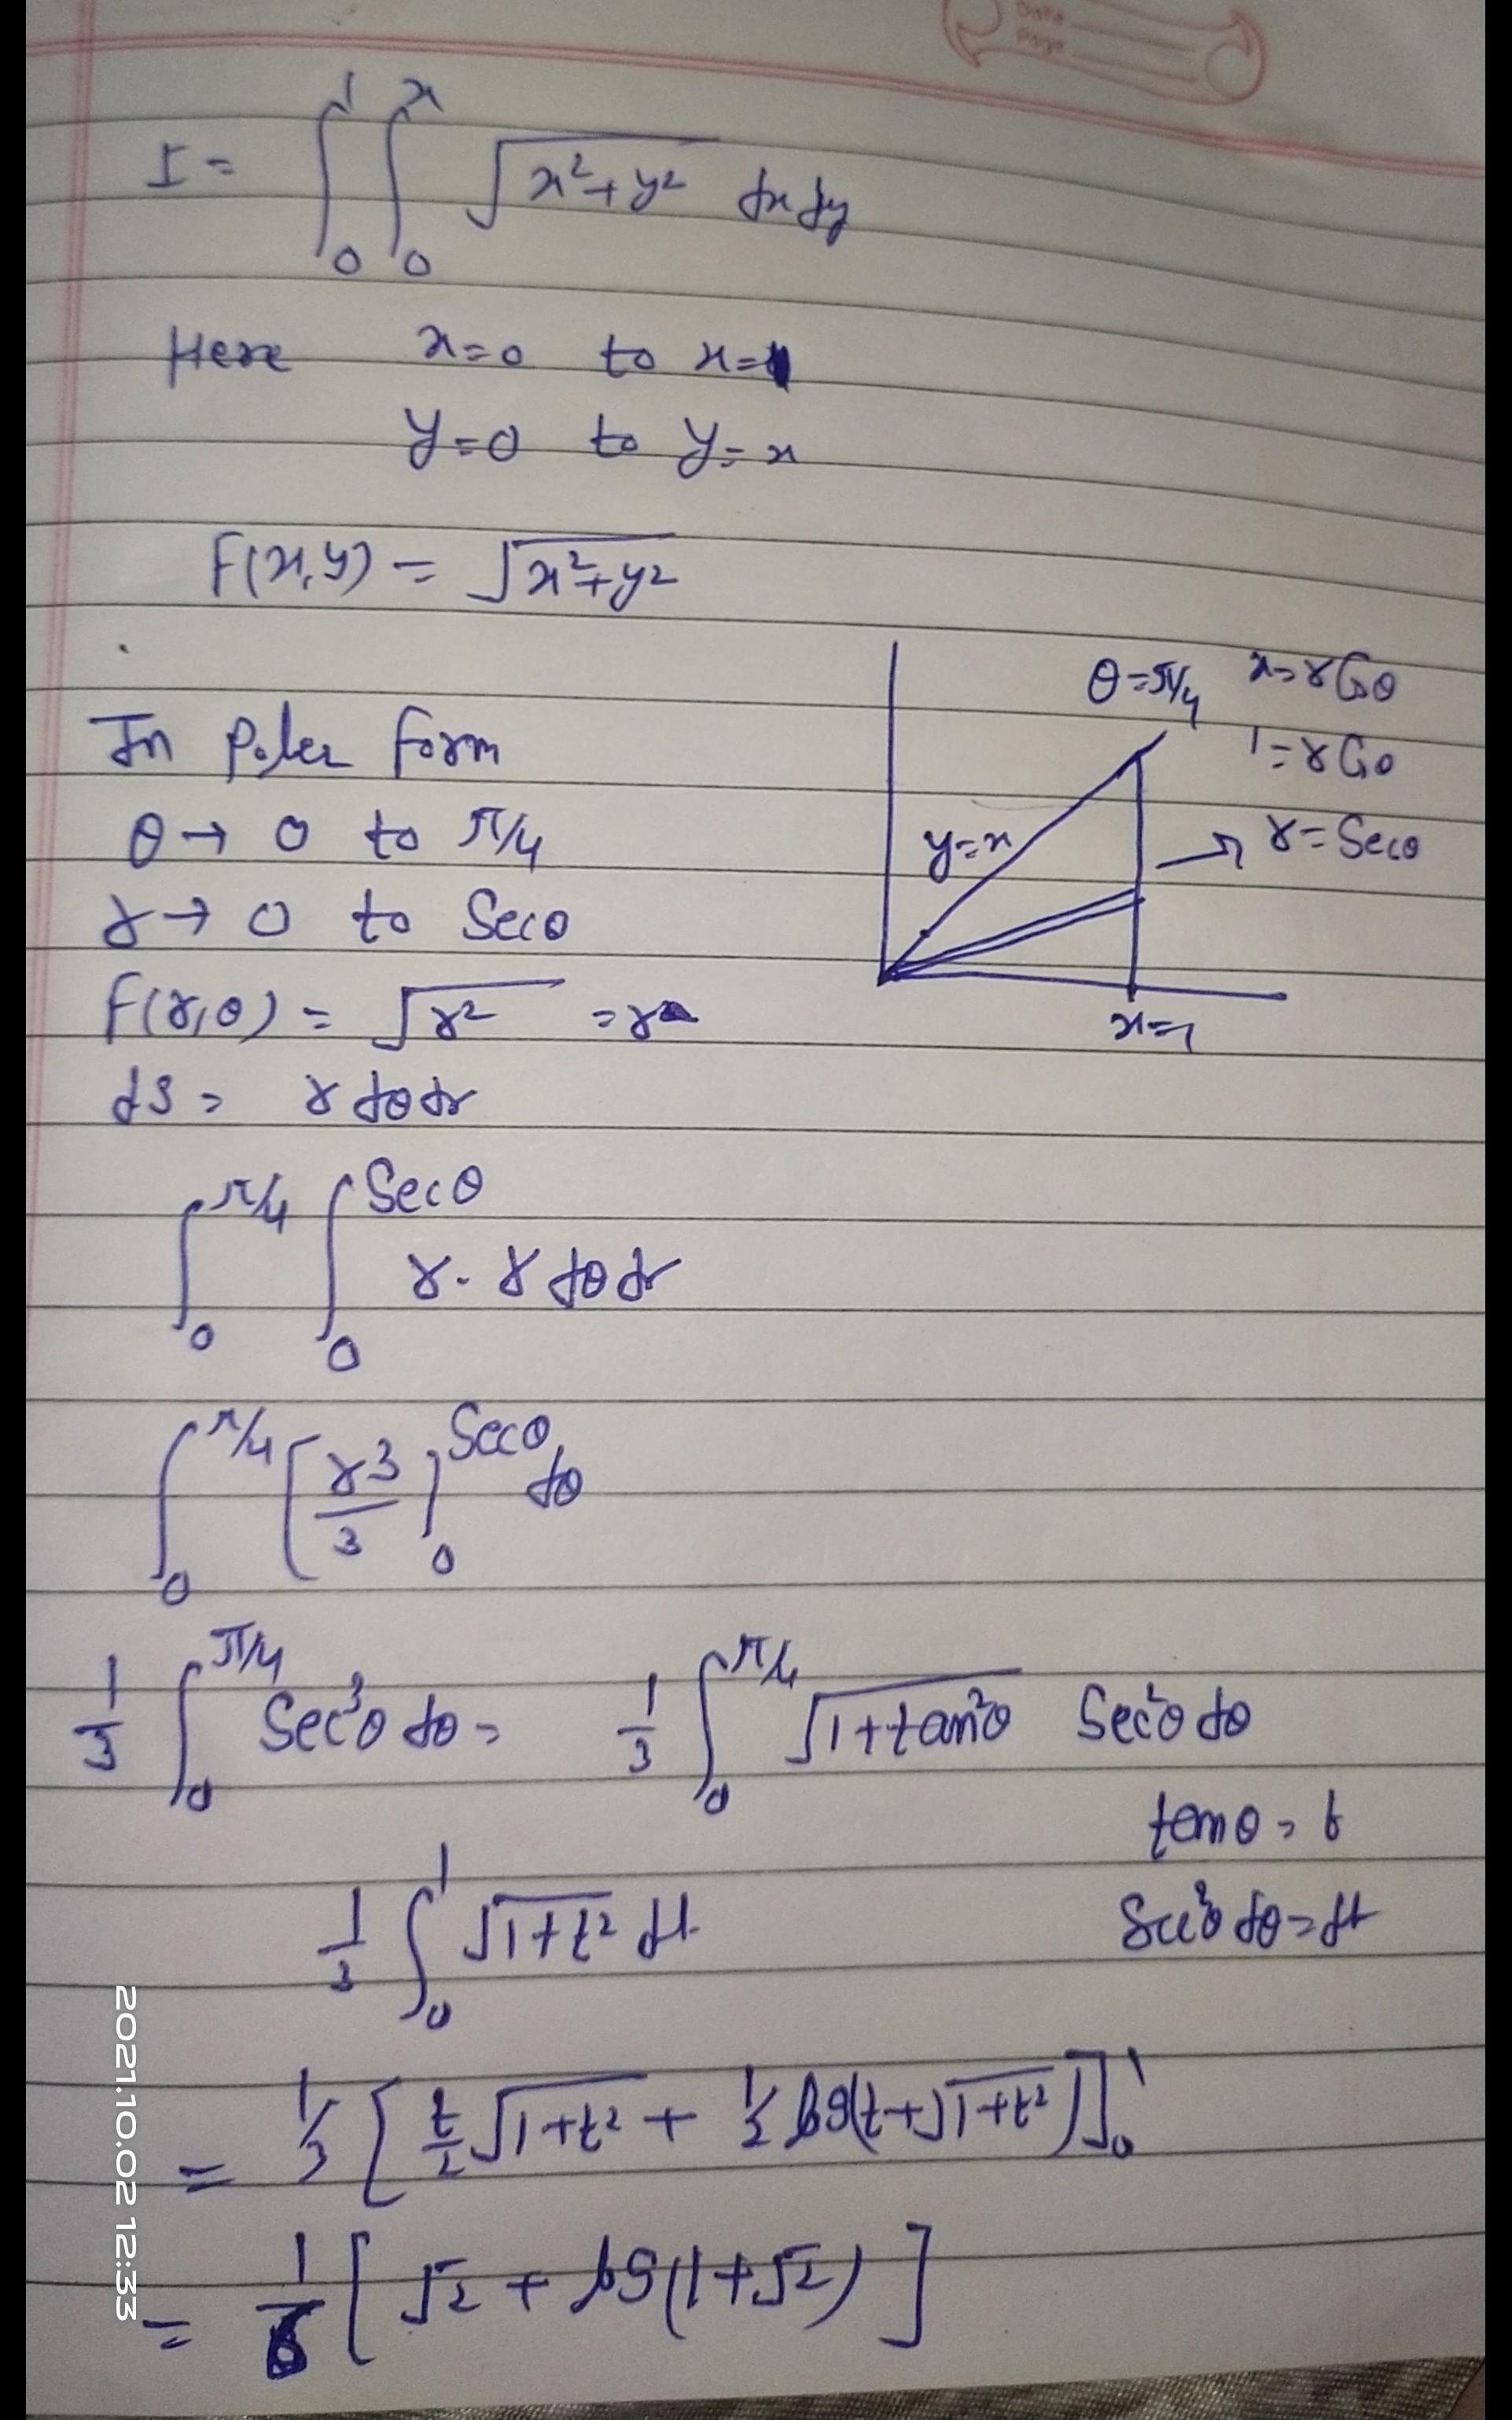 Date
Page
I = ∫₀¹ ∫₀ˣ √(x²+y²) dx dy
Here x=0 to x=1
y=0 to y=x
F(x,y) = √(x²+y²)
In Polar form
θ → 0 to π/4
r → 0 to Secθ
F(r,θ) = √r² = r
ds = r dθ dr
θ=π/4 x=r Cosθ
1=r Cosθ
y=x → r=Secθ
x=1
∫₀^(π/4) ∫₀^(Secθ) r·r dθ dr
∫₀^(π/4) [r³/3]₀^(Secθ) dθ
1/3 ∫₀^(π/4) Sec³θ dθ = 1/3 ∫₀^(π/4) √(1+tan²θ) Sec²θ dθ
tanθ = t
1/3 ∫₀¹ √(1+t²) dt Sec²θ dθ = dt
= 1/3 [t/2 √(1+t²) + 1/2 log(t+√(1+t²))]₀¹
= 1/6 [√2 + log(1+√2)]
2021.10.02 12:33